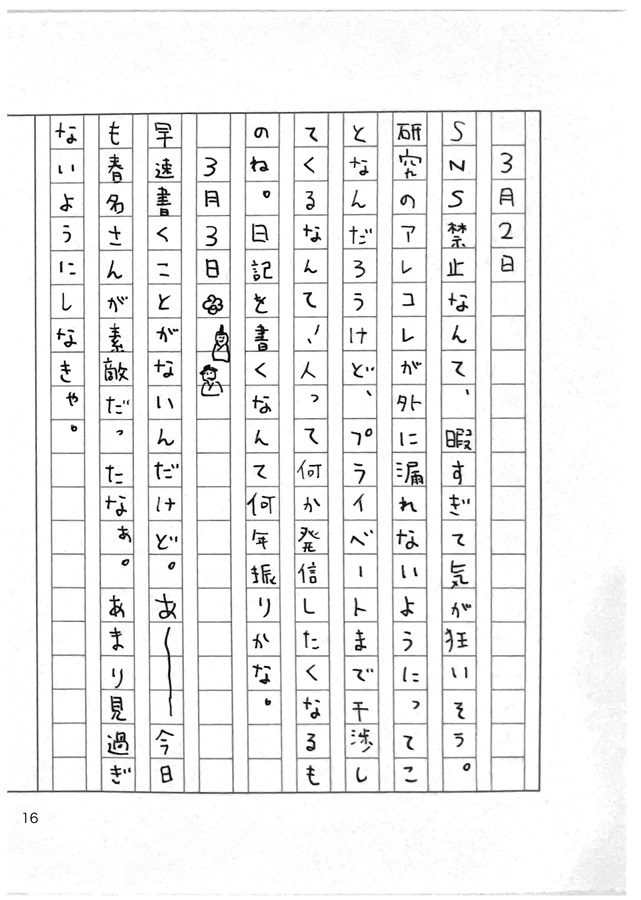 3月2日
SNS禁止なんて、暇すぎて気が狂いそう。
研究のアレコレが外に漏れないようにってこ
となんだろうけど、プライベートまで干渉し
てくるなんて、、人って何か発信したくなるも
のね。日記を書くなんて何年振りかな。
3月3日
早速書くことがないんだけど。あーーー今日
も春名さんが素敵だったなぁ。あまり見過ぎ
ないようにしなきゃ。
16